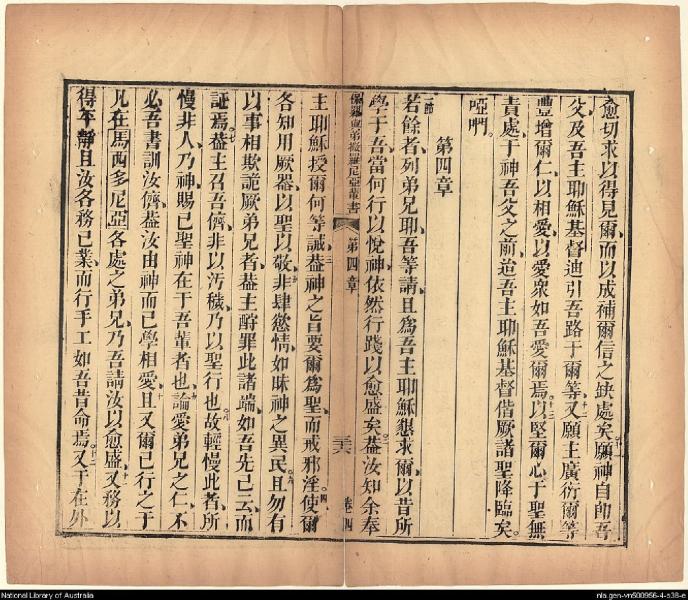 愈切求以得見爾而以成補爾信之缺處矣願神自即吾
父及吾主耶穌基督迪引吾路于爾等十二又願主廣衍爾等
豐增爾仁以相愛以愛眾如吾愛爾焉十三以堅爾心于聖無
責處于神吾父之前迨吾主耶穌基督偕厥諸聖降臨矣
啞
第四章
一節
若餘者列弟兄耶吾等請且為吾主耶穌懇求爾以昔所
學于吾當何行以悅神依然行踐以愈盛矣二蓋汝知余奉
第四章
卷四
主耶穌授爾何等誡三蓋神之旨要爾為聖而戒邪淫四使爾
各知用厥器以聖以敬五非肆慾情如昧神之異民六且勿有
以事相欺詭厥弟兄者蓋主酹罪此諸端如吾先已云而
証焉七蓋主召吾儕非以污穢乃以聖行也八故輕慢此者所
慢非人乃神賜已聖神在于吾輩者也九論愛弟兄之仁不
必吾書訓汝儕蓋汝由神而已學相愛十且又爾已行之于
凡在馬西多尼亞各處之弟兄乃吾請汝以愈盛又務以
得平靜且汝各務已業而行手工如吾昔命焉十二又于在外
National Library of Australia
nla.gen-vn500956-4-s38-e